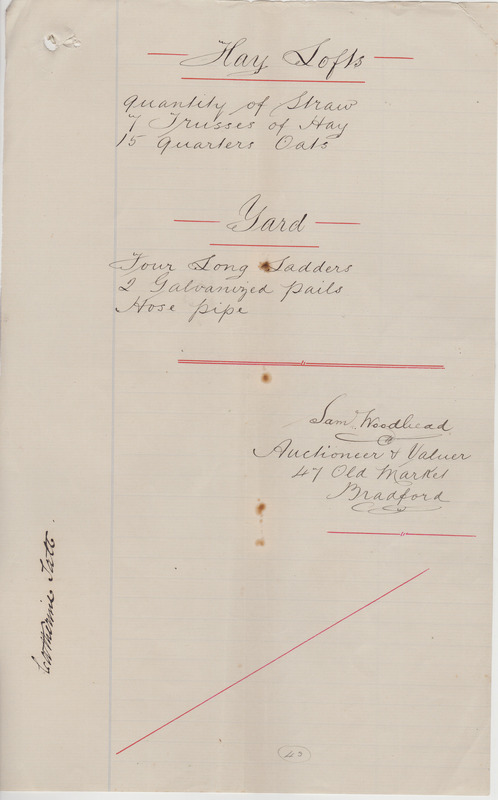 Hay Lofts
quantity of Straw
7 Trusses of Hay
15 quarters Oats
Yard
Four Long Ladders
2 Galvanized pails
Hose pipe
Saml. Woodhead
Auctioneer & Valuer
47 Old Market
Bradford